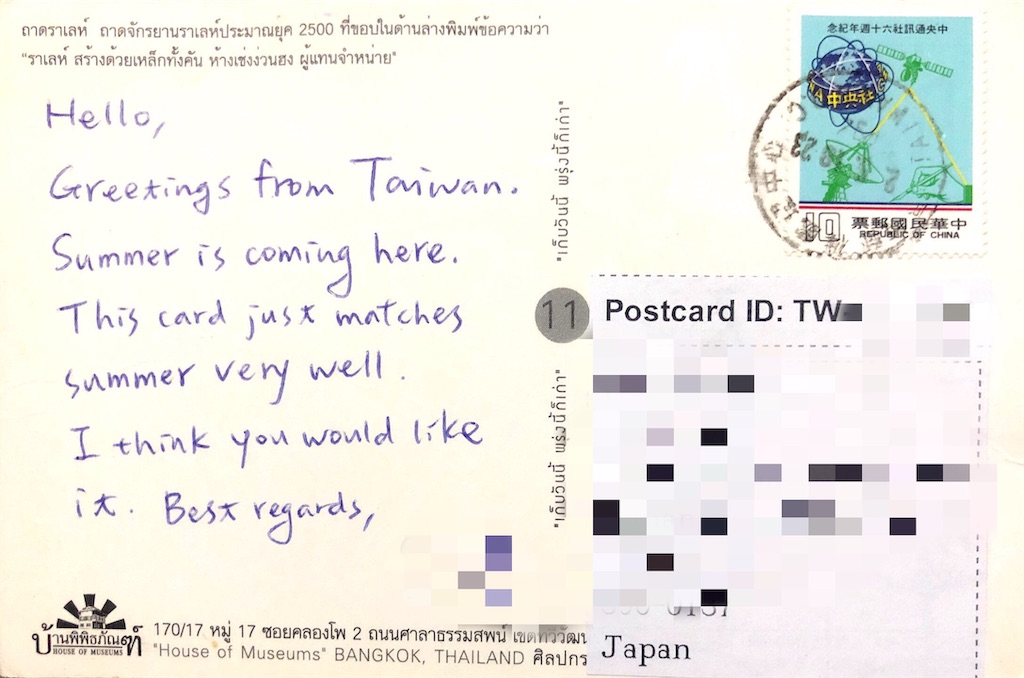 ถาดราเลห์ ถาดจักรยานราเลห์ประมาณยุค 2500 ที่ขอบในด้านล่างพิมพ์ข้อความว่า
"ราเลห์ สร้างด้วยเหล็กทั้งคัน ห้างเซ่งง่วนฮง ผู้แทนจำหน่าย"
Hello,
Greetings from Taiwan.
Summer is coming here.
This card just matches
summer very well.
I think you would like
it. Best regards,
"เก็บวันนี้ พรุ่งนี้ก็เก่า"
11
"เก็บวันนี้ พรุ่งนี้ก็เก่า"
念紀年週十六社訊通央中
中央社
10
票郵國民華中
REPUBLIC OF CHINA
Postcard ID: TW
Japan
บ้านพิพิธภัณฑ์
HOUSE OF MUSEUMS
170/17 หมู่ 17 ซอยคลองโพ 2 ถนนศาลาธรรมสพน์ เขตทวีวัฒน
"House of Museums" BANGKOK, THAILAND ศิลปกร